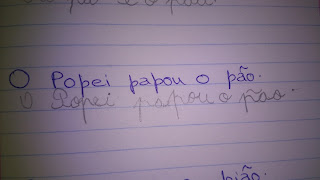 O Popei papou o pão.
O Popei papou o pão.